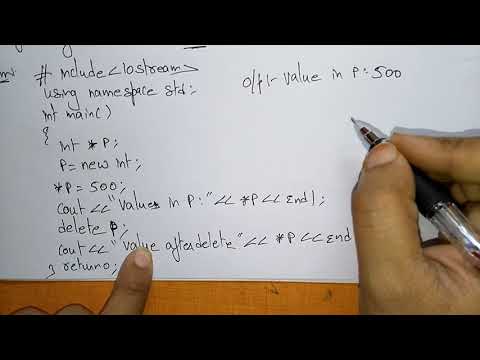 # include<iostream>
using namespace std;
int main()
{
int *P;
P= new int;
*P = 500;
cout<<"Value in P:"<< *P << Endl;
delete P;
cout<<"value after delete"<< *P << End
} return 0;
O/P:- value in P: 500